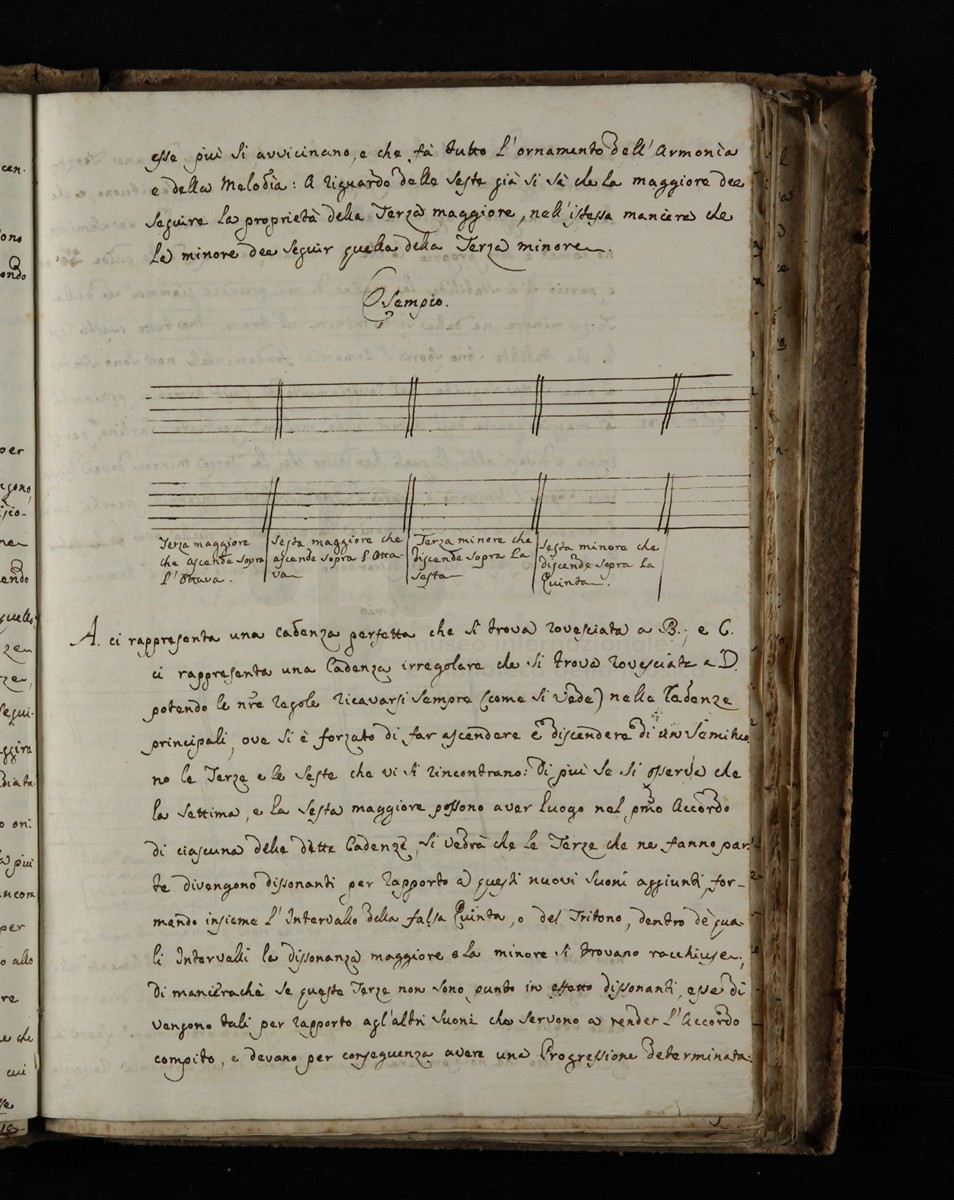 esse più si avvicinano, e che fà tutto l'ornamento dell'Armonìa
e della Melodìa: A riguardo delle Seste già si sà che la maggiore dee
seguire la proprietà della Terza maggiore, nell'istessa maniera che
la minore dee seguir quella della Terza minore.
Esempio.
Terza maggiore
che ascende sopra
l'Ottava.
Sesta maggiore che
ascende sopra l'Otta-
va
Terza minore che
discende sopra la
Sesta
Sesta minore che
discende sopra la
Quinta.
A. ci rappresenta una Cadenza perfetta che si trova rovesciata a B.; e C.
ci rappresenta una Cadenza irregolare che si trova rovesciata a D.
potendo le nr̃e regole ricavarsi sempre (come si vede) nelle Cadenze
principali, ove si è forzato di far ascendere e discendere di un Semituo
no le Terze e le Seste che vi si rincontrano: Di più se si osserva che
la Settima, e la Sesta maggiore possono aver luogo nel pm̃o Accordo
di ciascuna delle dette Cadenze, si vedrà che le Terze che ne fanno par
te divengono dissonanti per rapporto a questi nuovi Suoni aggiunti, for-
mando insieme l'Intervallo della falsa Quinta, o del Tritono, dentro de' qua
li Intervalli la dissonanza maggiore e la minore si trovano racchiuse;
di manierachè se queste Terze non sono punto in effetto dissonanti, esse di
vengono tali per rapporto agl'altri Suoni che servono a render l'Accordo
compito, e devano per conseguenza avere una Progressione determinata.